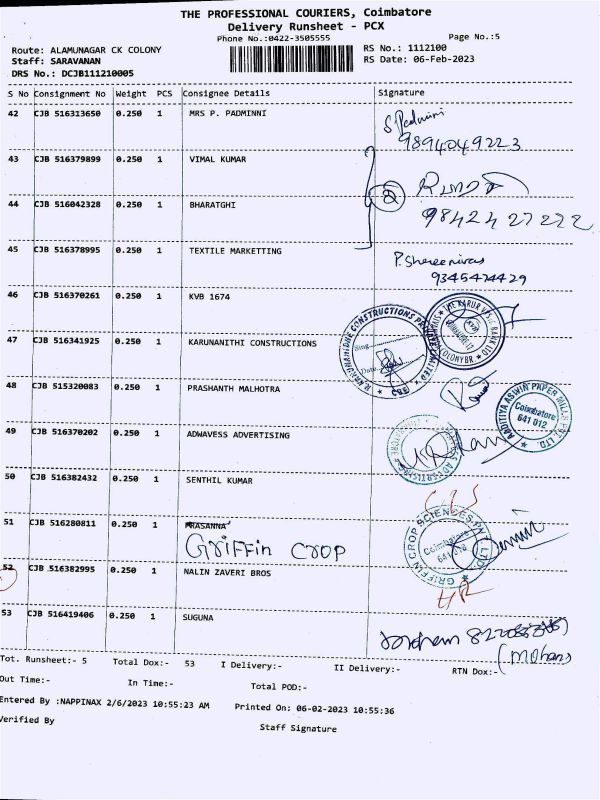 THE PROFESSIONAL COURIERS, Coimbatore
Delivery Runsheet - PCX
Phone No.:0422-3505555
Page No.:5
Route: ALAMUNAGAR CK COLONY
RS No.: 1112100
Staff: SARAVANAN
RS Date: 06-Feb-2023
DRS No.: DCJB111210005
S No Consignment No Weight PCS Consignee Details Signature
42 CJB 516313650 0.250 1 MRS P. PADMINNI
S.Padmini
9894049223
43 CJB 516379899 0.250 1 VIMAL KUMAR
44 CJB 516042328 0.250 1 BHARATGHI
2
9842427222
45 CJB 516378995 0.250 1 TEXTILE MARKETTING
P. Shreenivas
9345474429
46 CJB 516370261 0.250 1 KVB 1674
47 CJB 516341925 0.250 1 KARUNANITHI CONSTRUCTIONS
48 CJB 515320083 0.250 1 PRASHANTH MALHOTRA
AADITIYA ASWIN PAPER MILLS PVT. LTD.
Coimbatore
641 012
49 CJB 516370202 0.250 1 ADWAVESS ADVERTISING
50 CJB 516382432 0.250 1 SENTHIL KUMAR
51 CJB 516280811 0.250 1 PRASANNA
GRIFFIN CROP
GRIFFIN CROP SCIENCES PVT. LTD.
Coimbatore
52 CJB 516382995 0.250 1 NALIN ZAVERI BROS
53 CJB 516419406 0.250 1 SUGUNA
(Mohan)
Tot. Runsheet:- 5 Total Dox:- 53 I Delivery:- II Delivery:- RTN Dox:-
Out Time:- In Time:- Total POD:-
Entered By :NAPPINAX 2/6/2023 10:55:23 AM Printed On: 06-02-2023 10:55:36
Verified By
Staff Signature